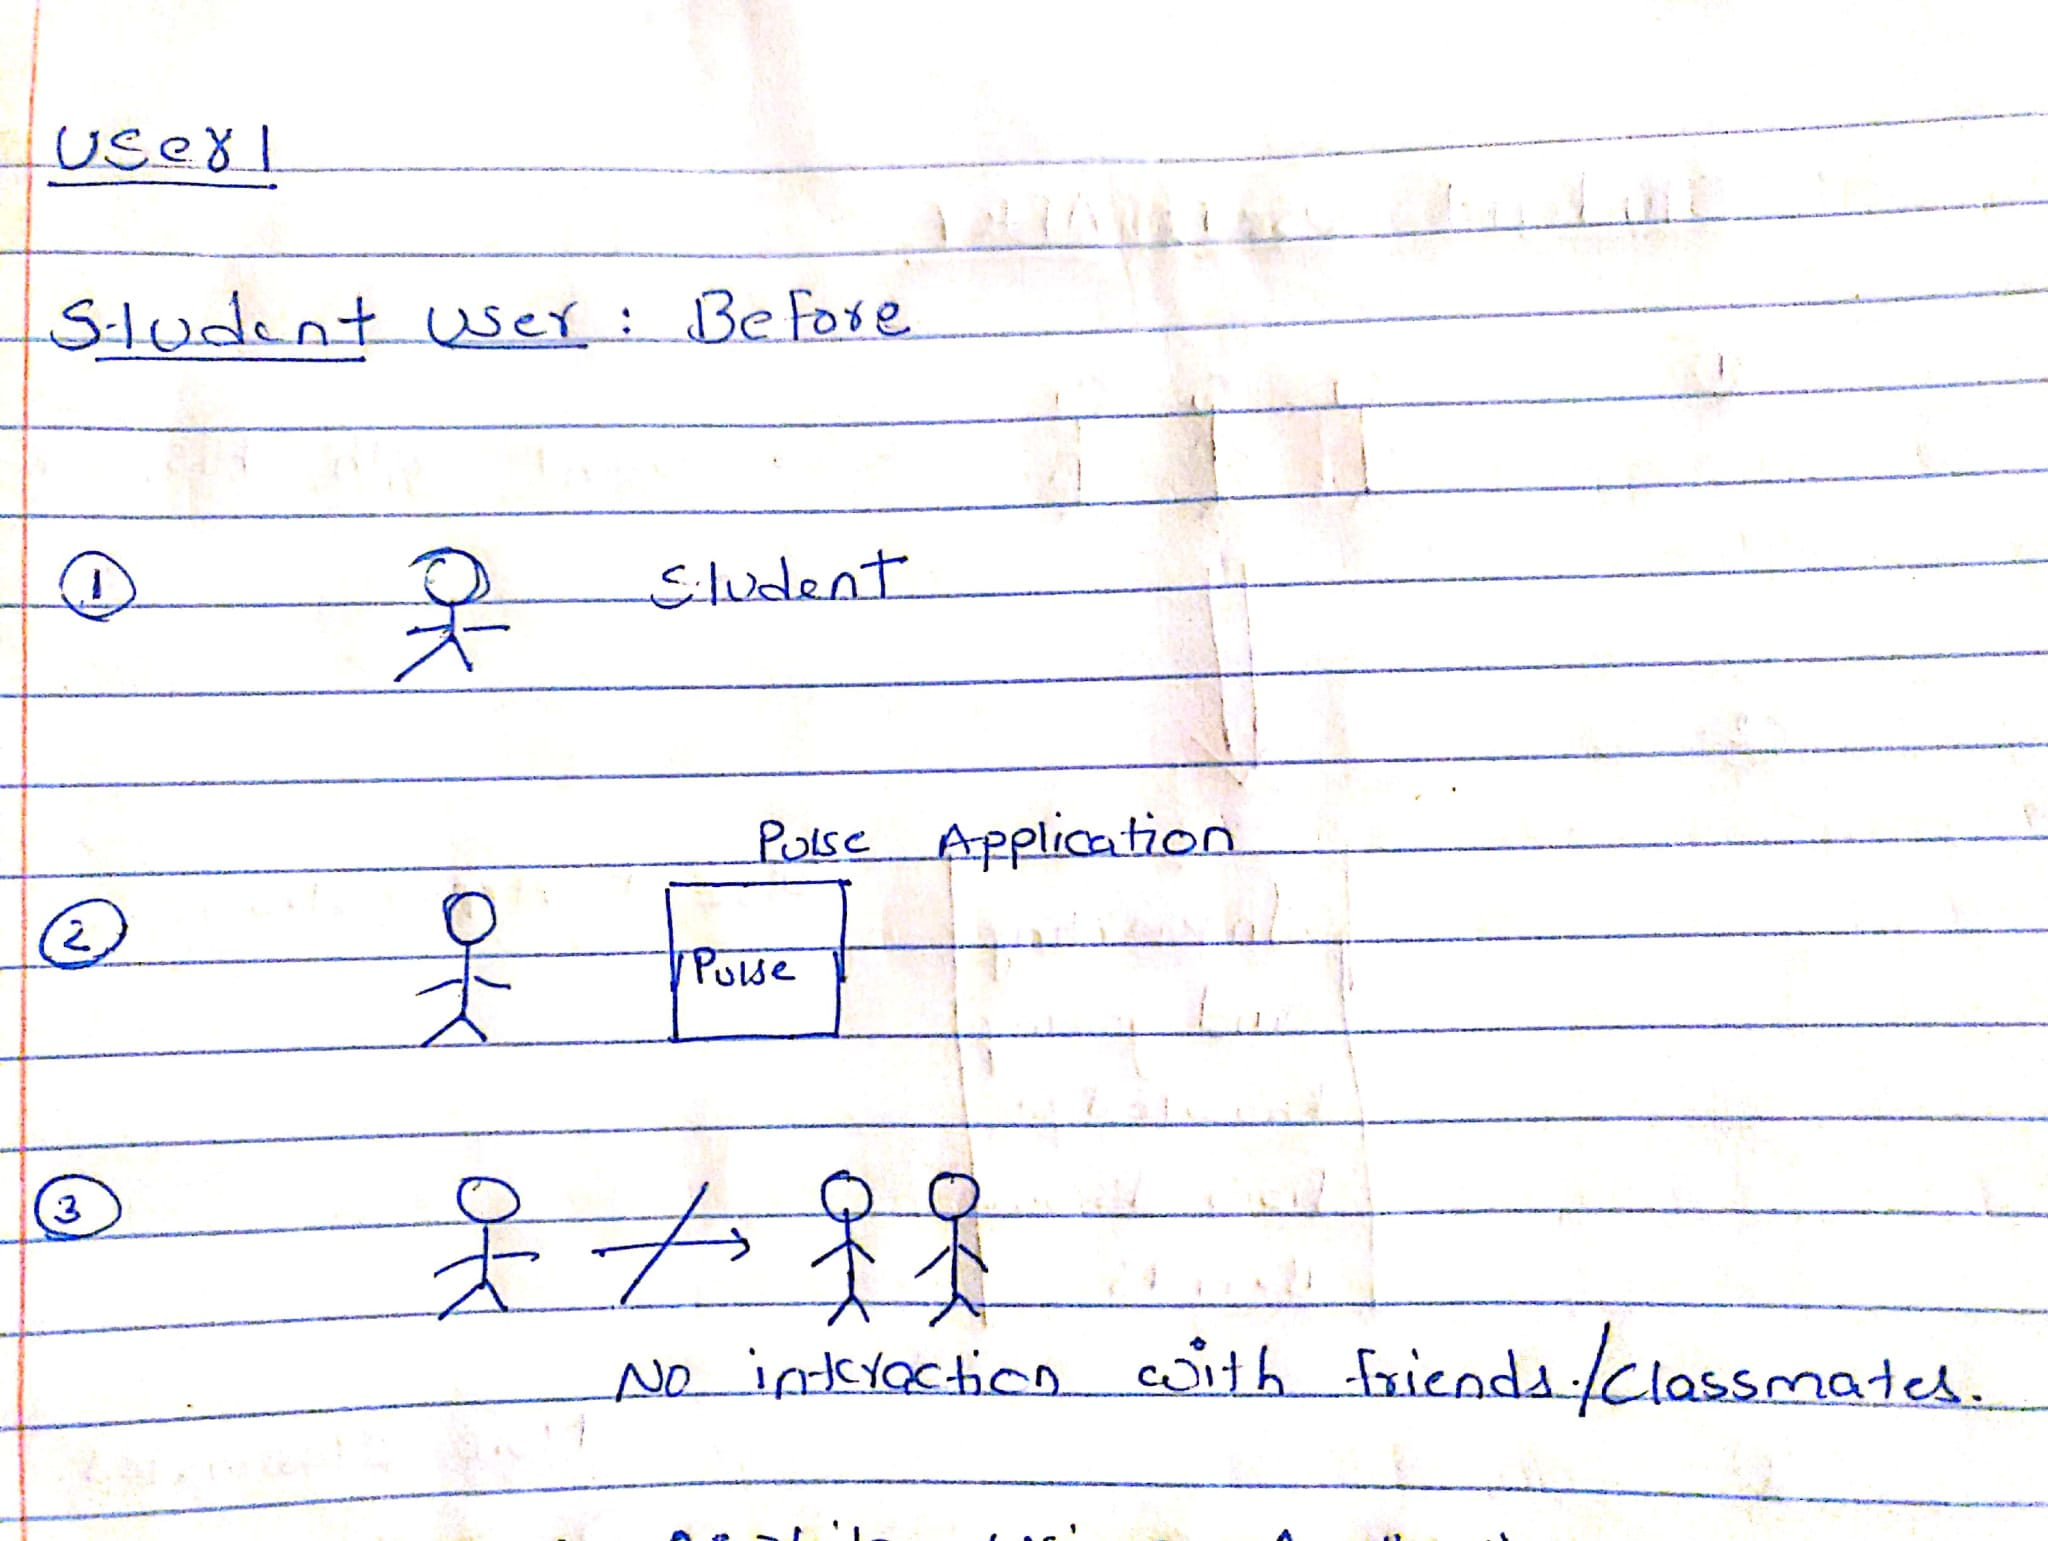 User 1
Student User : Before
1 Student
Pulse Application
2 Pulse
3
No interaction with friends/Classmates.